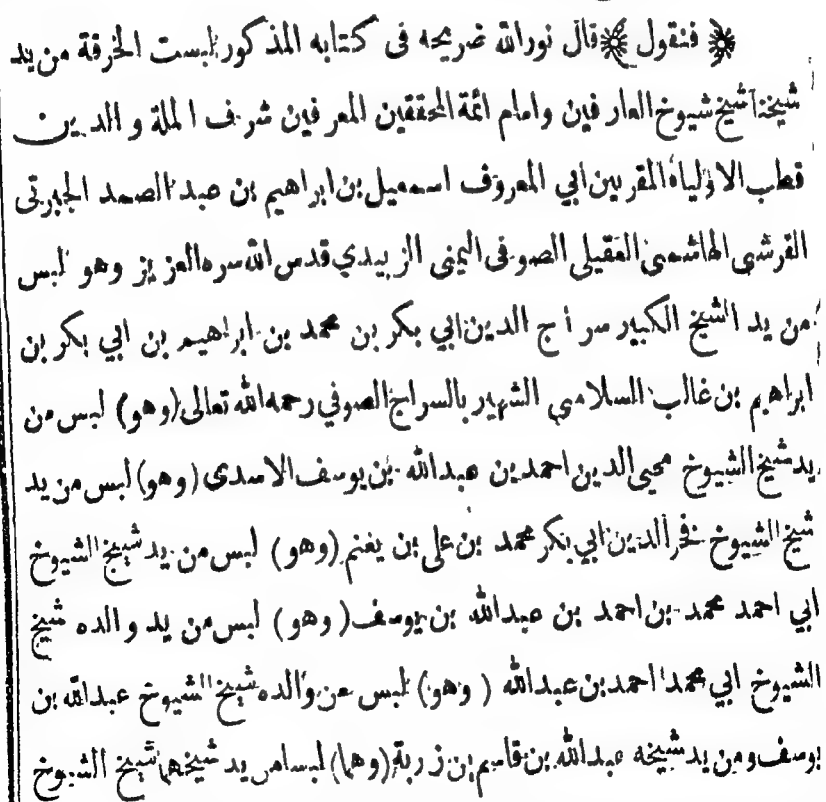 ﴿ فنقول ﴾ قال نور الله ضريحه فى كتابه المذكور لبست الخرقة من يد
شيخنا شيخ شيوخ العارفين وامام ائمة المحققين المعرفين شرف الملة والدين
قطب الاولياء المقربين ابي المعروف اسمعيل بن ابراهيم بن عبد الصمد الجبرتى
القرشى الهاشمى العقيلى الصوفى اليمنى الزبيدي قدس الله سره العزيز وهو لبس
من يد الشيخ الكبير سراج الدين ابي بكر بن محمد بن ابراهيم بن ابي بكر بن
ابراهيم بن غالب السلامى الشهير بالسراج الصوفي رحمه الله تعالى (وهو) لبس من
يد شيخ الشيوخ محيى الدين احمد بن عبدالله بن يوسف الاسدى (وهو) لبس من يد
شيخ الشيوخ فخر الدين ابي بكر محمد بن على بن يغنم (وهو) لبس من يد شيخ الشيوخ
ابي احمد محمد بن احمد بن عبدالله بن يوسف (وهو) لبس من يد والده شيخ
الشيوخ ابي محمد احمد بن عبدالله (وهو) لبس من والده شيخ الشيوخ عبدالله بن
يوسف ومن يد شيخه عبدالله بن قاسم بن زربة (وهما) لبسا من يد شيخهما شيخ الشيوخ